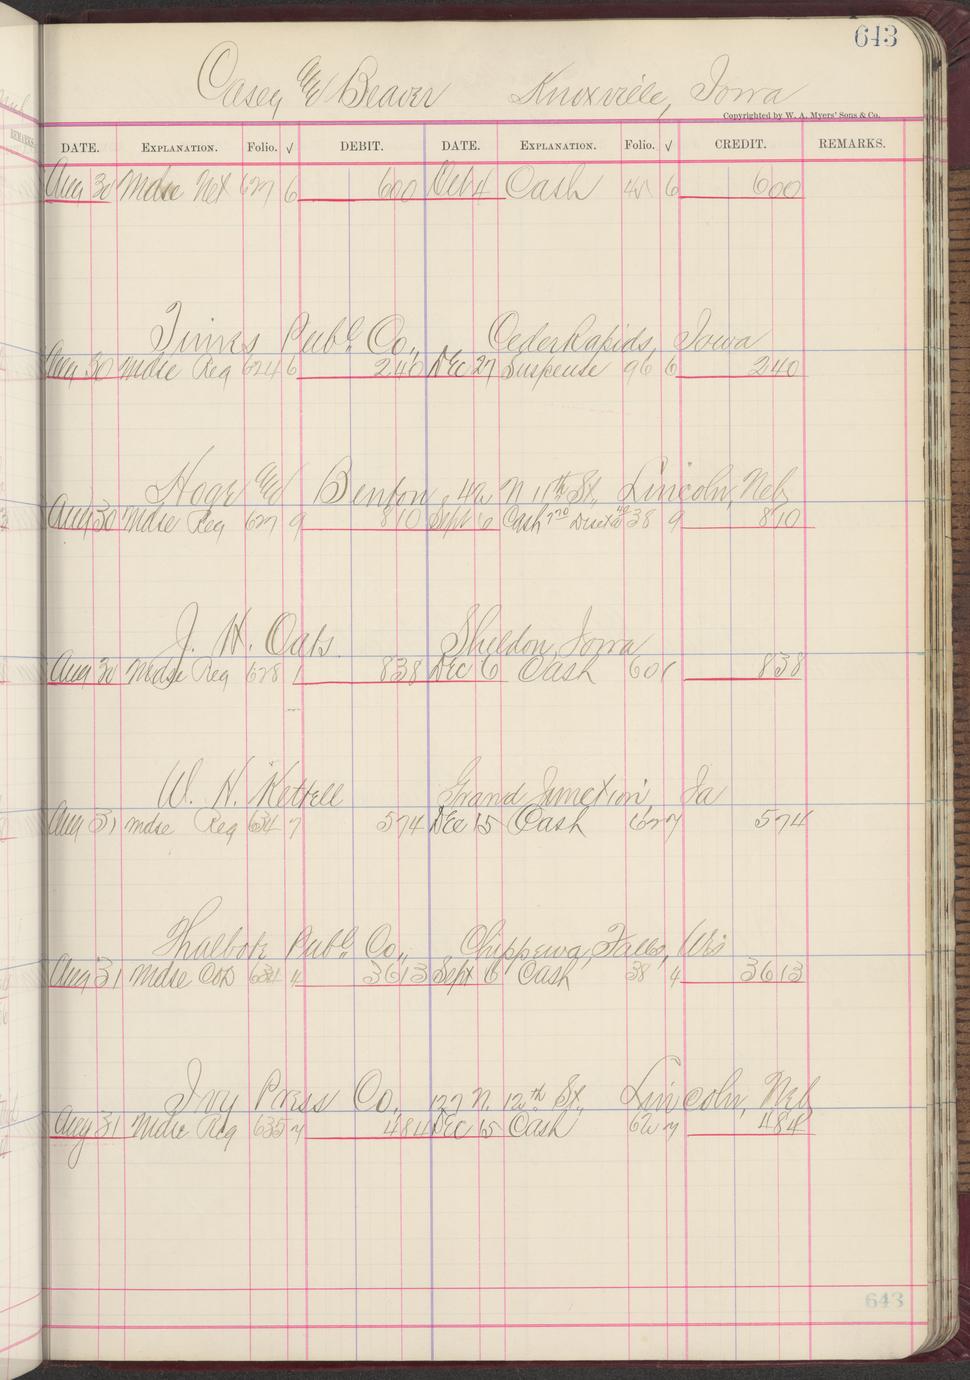 643
Casey and Beaver Knoxville, Iowa
Copyrighted by W. A. Myers' Sons & Co.
DATE. EXPLANATION. Folio. √ DEBIT. DATE. EXPLANATION. Folio. √ CREDIT. REMARKS.
Aug 30 Mdse Net 627 6 600 Oct 4 Cash 6 600
Times Publ. Co., CedarRapids, Iowa
Aug 30 Mdse Reg 624 6 240 Dec 27 Suspense 96 6 240
Hoge and Benton, N 11th St, Lincoln, Neb
Aug 30 Mdse Reg 627 9 810 Sept 6 Cash 770 Disct 40 38 9 810
J. H. Oats. Sheldon, Iowa
Aug 30 Mdse Reg 628 1 838 Dec 6 Cash 60 1 838
W. H. Kettell Grand Junction, Ia
Aug 31 Mdse Reg 634 7 574 Dec 15 Cash 62 7 574
Publ. Co., Chippewa, Falls, Wis
Aug 31 Mdse COD 634 4 3613 Sept 6 Cash 38 4 3613
Ivy Press Co, 127 N. 12th St, Lincoln, Neb
Aug 31 Mdse Reg 635 7 484 Dec 15 Cash 62 7 484
643